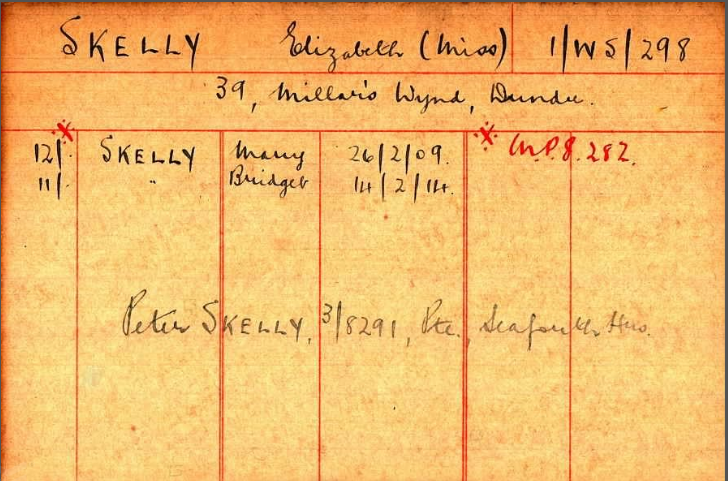 SKELLY Elizabeth (Miss) 1/WS/298
39, Millar's Wynd, Dundee.
12/- SKELLY Mary 26/2/09. * M.P.8. 282.
11/- " Bridget 14/2/14.
Peter SKELLY, 3/8291, Pte., Seaforth Hrs.